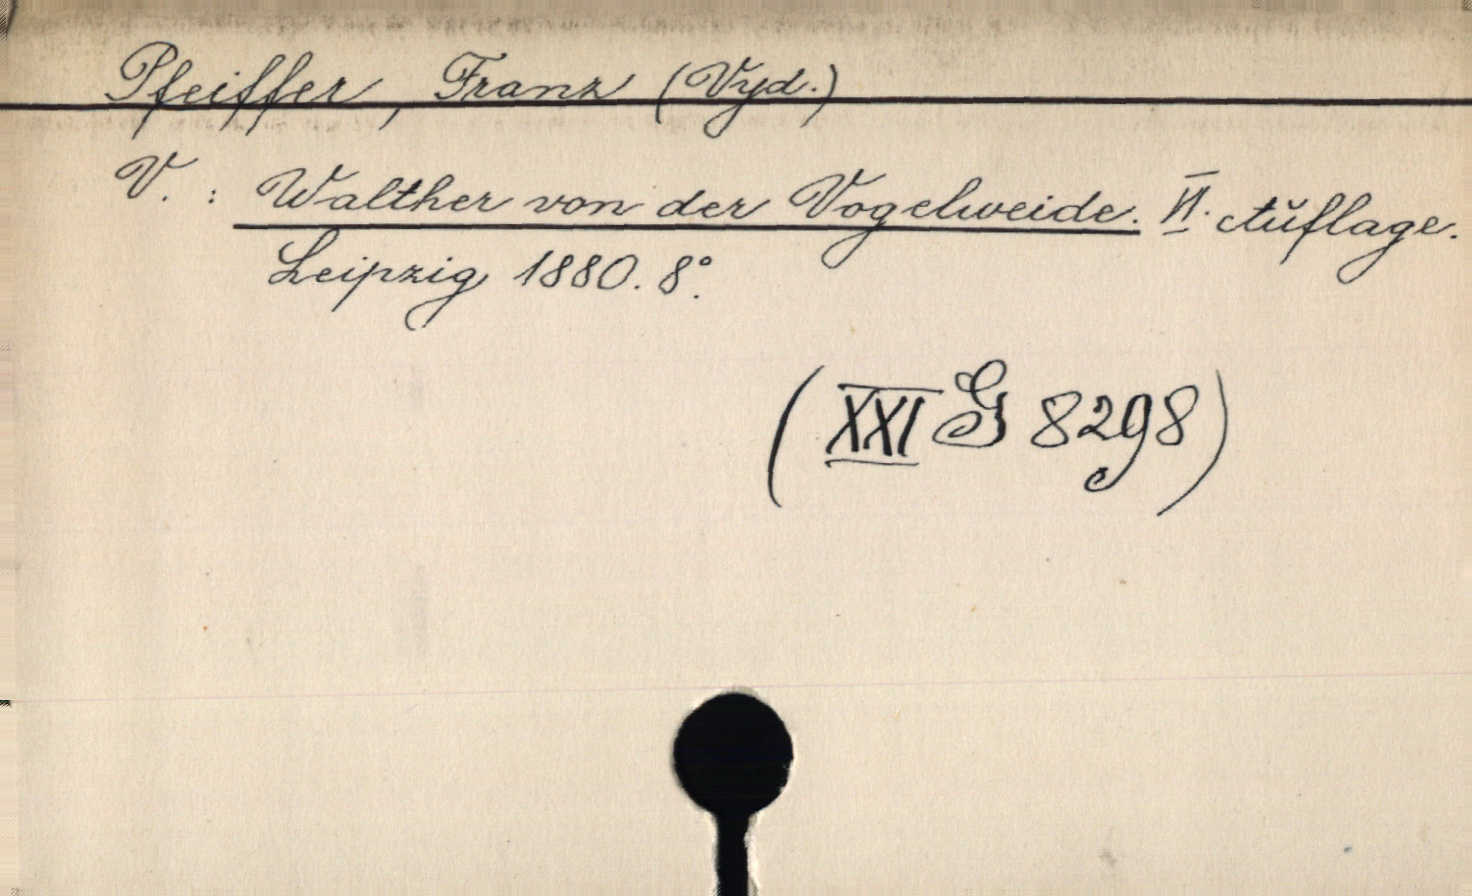 Pfeiffer, Franz (Vyd.)
V. : Walther von der Vogelweide. VI. Auflage.
Leipzig 1880. 8°.
(XXI G 8298)